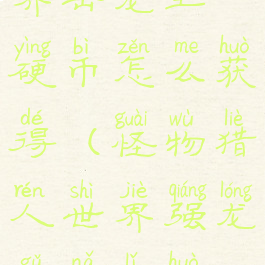 yìng bì zěn me huò
硬币怎么获
dé guài wù liè
得（怪物猎
rén shì jiè qiáng lóng
人世界强龙